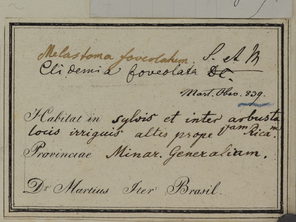 Melastoma foveolatum. S. et M
Clidemia foveolata DC.
Mart. Obs. 839.
Habitat in sylvis et inter arbusta
locis irriguis altis prope Vjam Ricam.
Provinciae Minar. Generalium.
Dr Martius Iter Brasil.